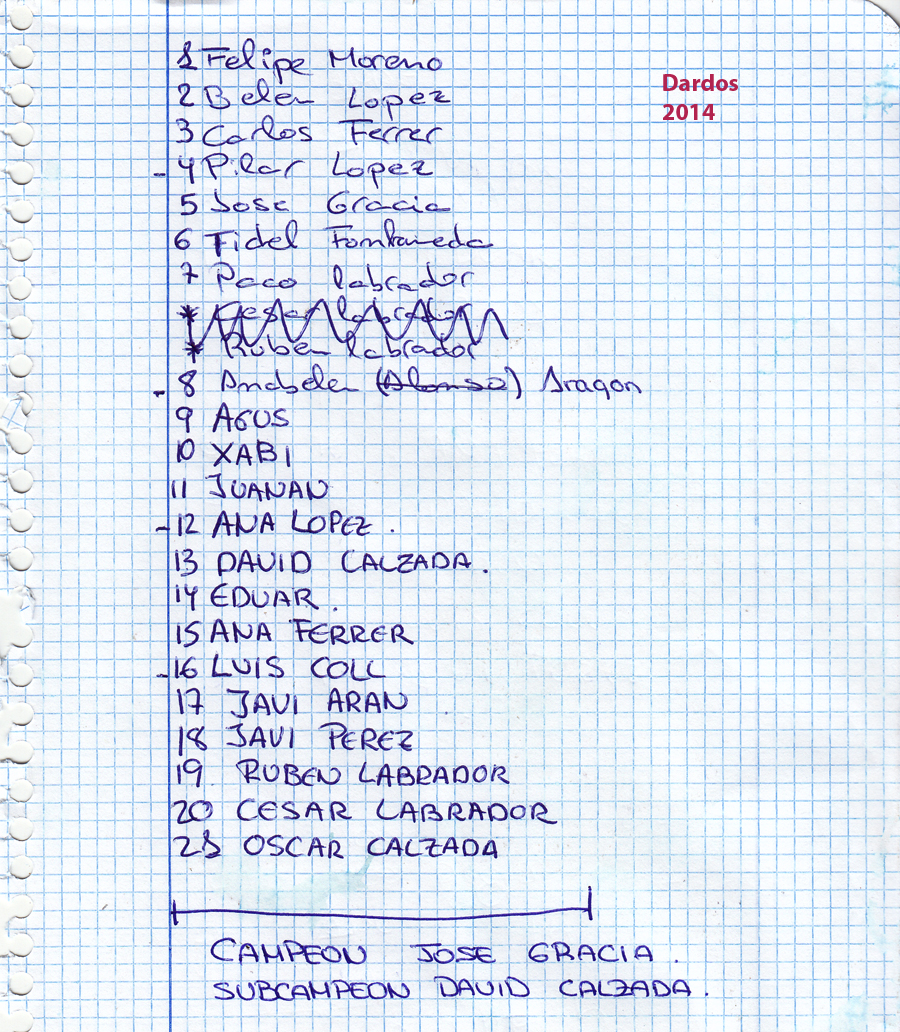 Dardos
2014
1 Felipe Moreno
2 Belen Lopez
3 Carlos Ferrer
- 4 Pilar Lopez
5 Jose Gracia
6 Fidel Fontaneda
7 Paco labrador
* Cesar labrador
* Ruben labrador
- 8 Anabelen (Alonso) Aragon
9 AGUS
10 XABI
11 JUANAN
- 12 ANA LOPEZ .
13 DAVID CALZADA .
14 EDUAR .
15 ANA FERRER
- 16 LUIS COLL
17 JAVI ARAN
18 JAVI PEREZ
19 RUBEN LABRADOR
20 CESAR LABRADOR
21 OSCAR CALZADA
CAMPEON JOSE GRACIA .
SUBCAMPEON DAVID CALZADA .